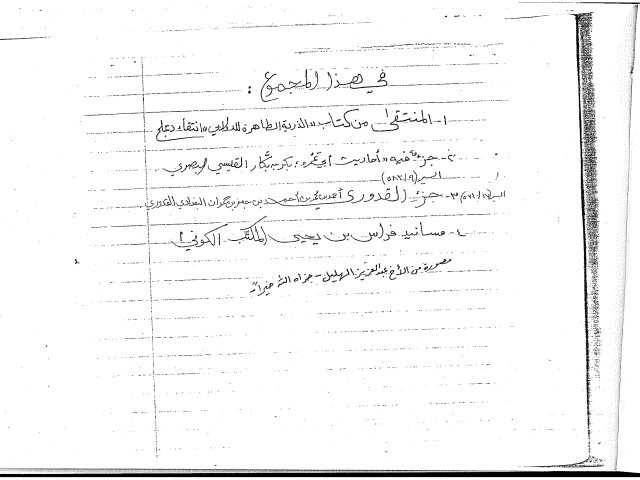 في هذا المجموع :
١- المنتقى من كتاب «الذرية الطاهرة للدولابي» انتقاء دعلج
٢- جزء فيه «أحاديث أبي عمرو بكر بن بكار القيسي البصري
السير (٩/ ٥٨٣)
٣- جزء القدوري أحمد بن محمد بن أحمد بن جعفر بن حمدان البغدادي القدوري
السير ١٧/ ٥٧٤
٤- مسانيد فراس بن يحيى المكتب الكوفي
مصورة من الأخ عبدالعزيز الهليل - جزاه الله خيراً